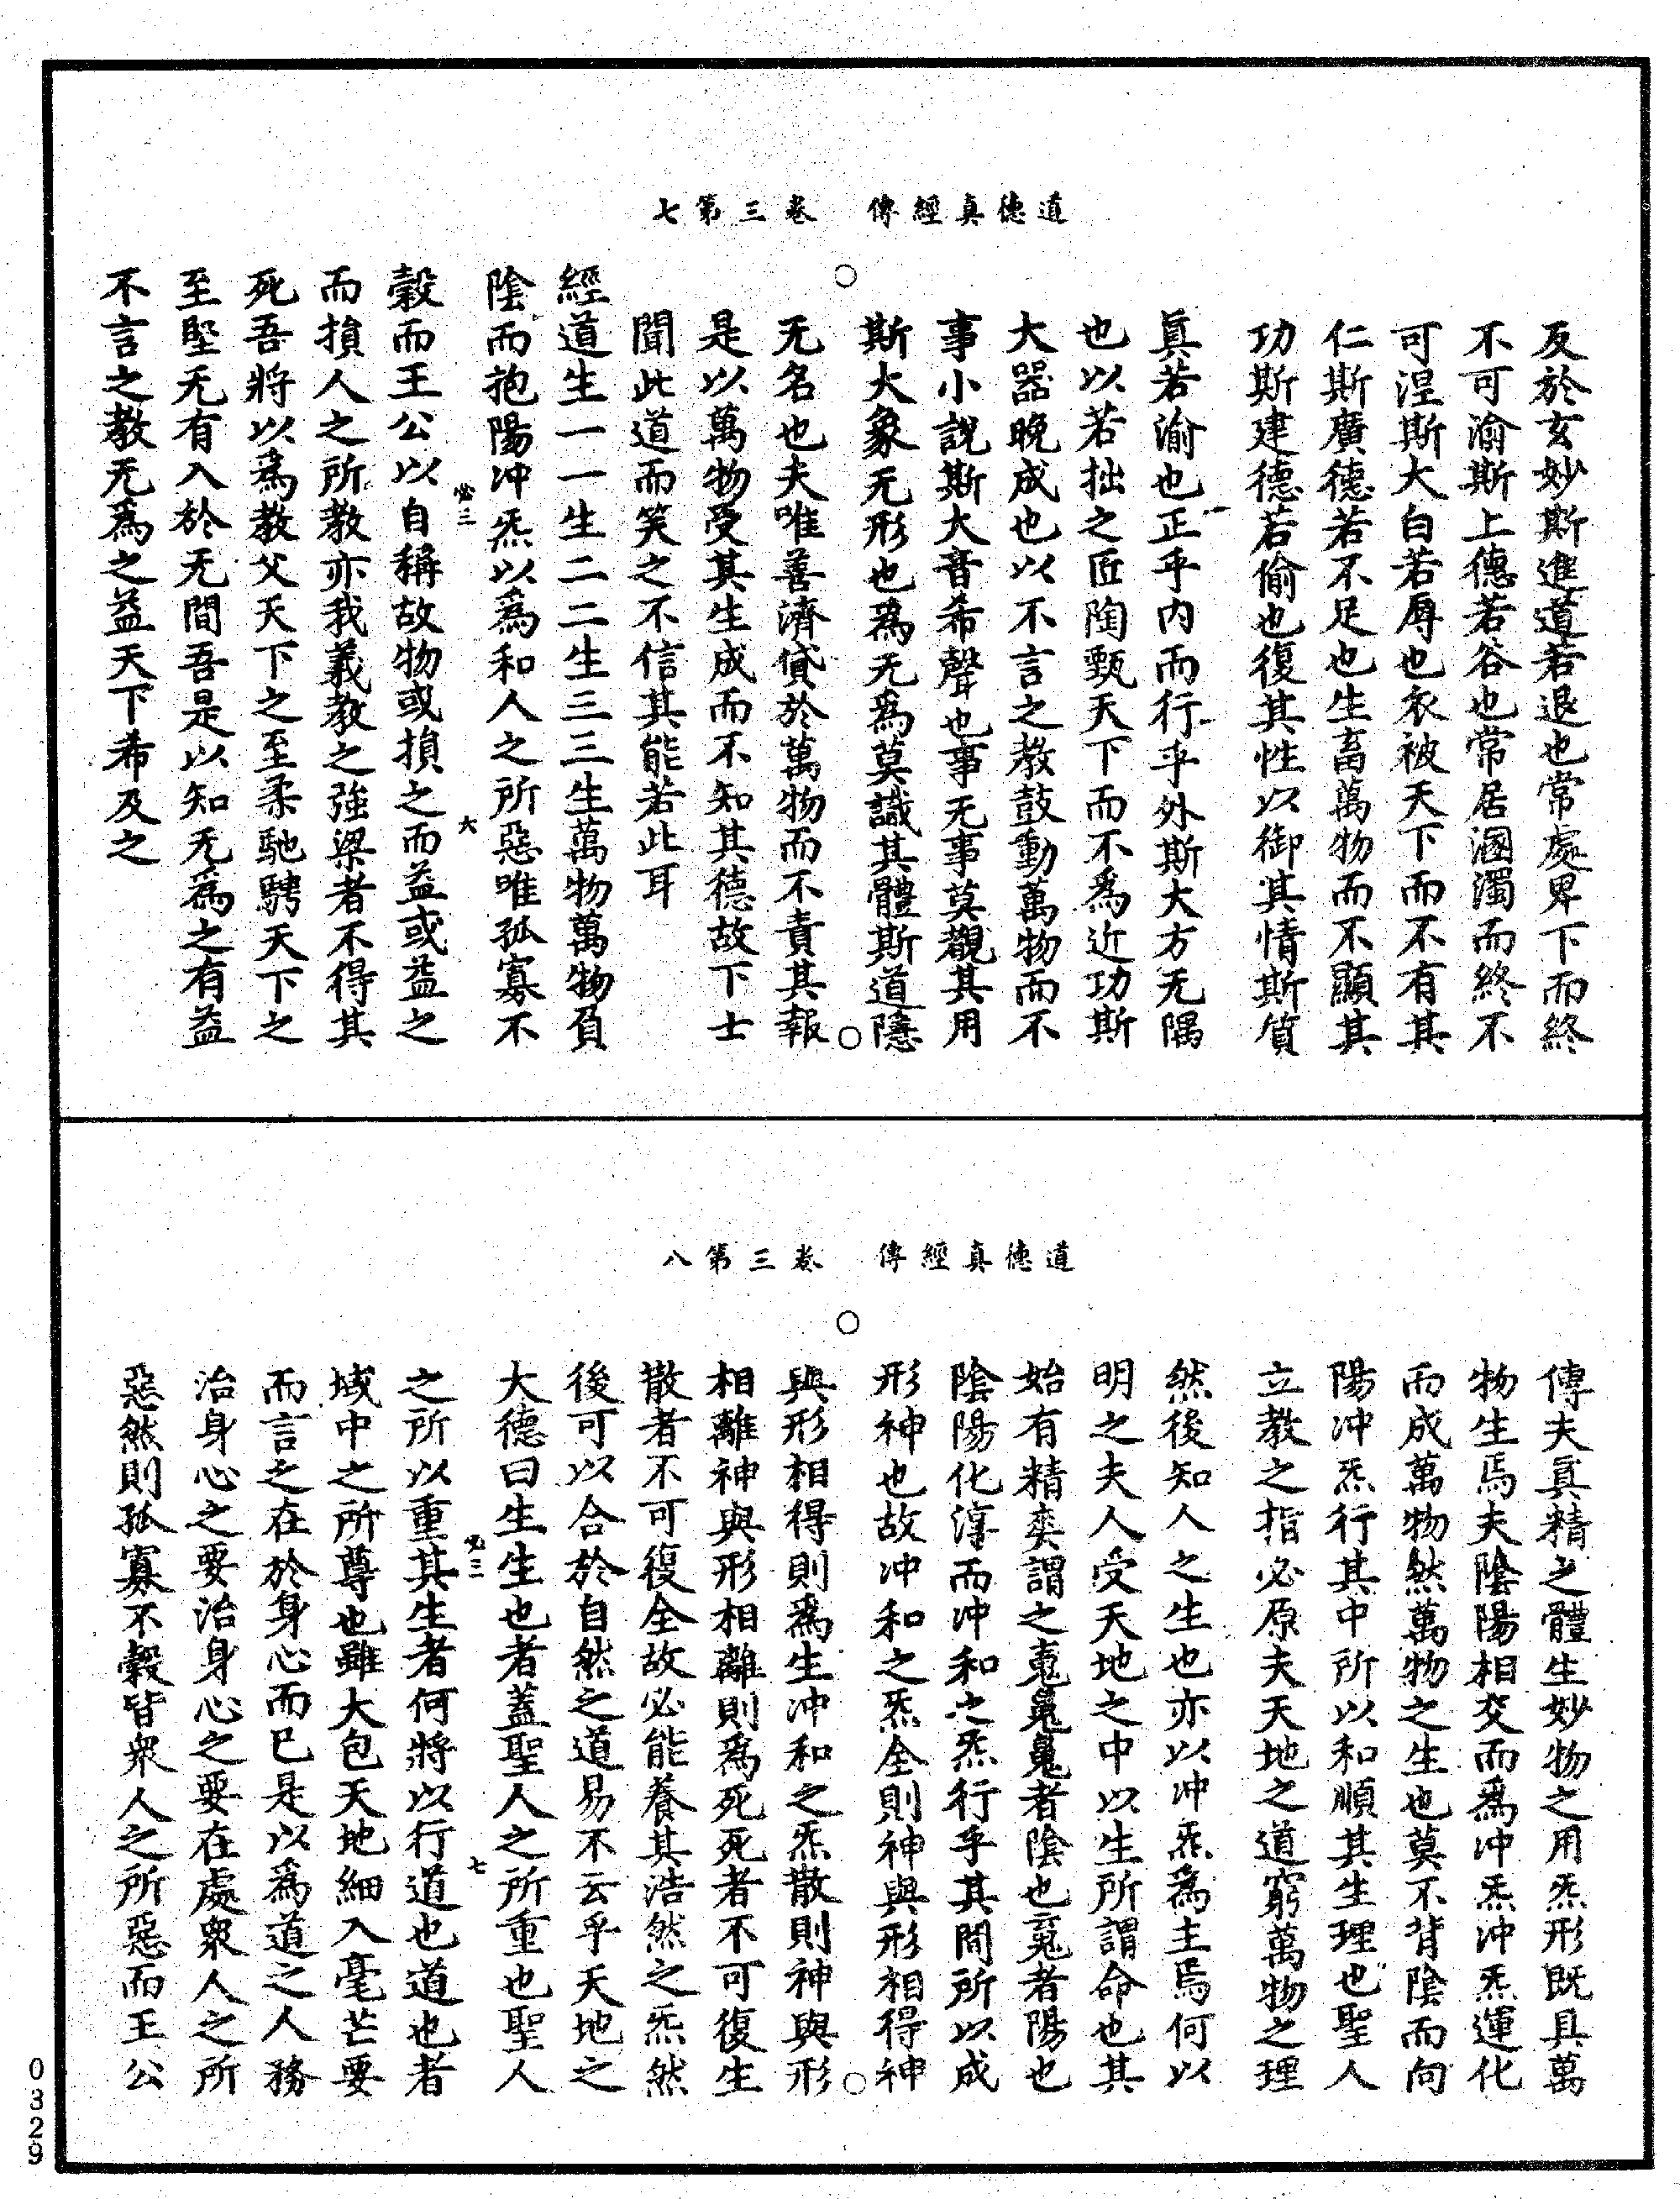 道德真經傳　卷三第七
反於玄妙斯進道若退也常處卑下而終
不可渝斯上德若谷也常居溷濁而終不
可涅斯大白若辱也衣被天下而不有其
仁斯廣德若不足也生畜萬物而不顯其
功斯建德若偷也復其性以御其情斯質
真若渝也正乎内而行乎外斯大方无隅
也以若拙之匠陶甄天下而不為近功斯
大器晚成也以不言之教鼓動萬物而不
事小說斯大音希聲也事无事莫覩其用
斯大象无形也為无為莫識其體斯道隱
无名也夫唯善濟貸於萬物而不責其報
是以萬物受其生成而不知其德故下士
聞此道而笑之不信其能若此耳
經道生一一生二二生三三生萬物萬物負
陰而抱陽冲炁以為和人之所惡唯孤寡不
必三　六
穀而王公以自稱故物或損之而益或益之
而損人之所教亦我義教之強梁者不得其
死吾將以為教父天下之至柔馳騁天下之
至堅无有入於无間吾是以知无為之有益
不言之教无為之益天下希及之
道德真經傳　卷三第八
傳夫真精之體生妙物之用炁形既具萬
物生焉夫陰陽相交而為冲炁冲炁運化
而成萬物然萬物之生也莫不背陰而向
陽冲炁行其中所以和順其生理也聖人
立教之指必原夫天地之道窮萬物之理
然後知人之生也亦以冲炁為主焉何以
明之夫人受天地之中以生所謂命也其
始有精爽謂之䰟魄魄者陰也䰟者陽也
陰陽化淳而冲和之炁行乎其間所以成
形神也故冲和之炁全則神與形相得神
與形相得則為生冲和之炁散則神與形
相離神與形相離則為死死者不可復生
散者不可復全故必能養其浩然之炁然
後可以合於自然之道易不云乎天地之
大德曰生生也者蓋聖人之所重也聖人
必三　七
之所以重其生者何將以行道也道也者
域中之所尊也雖大包天地細入毫芒要
而言之在於身心而已是以為道之人務
治身心之要治身心之要在處衆人之所
惡然則孤寡不穀皆衆人之所惡而王公
0329